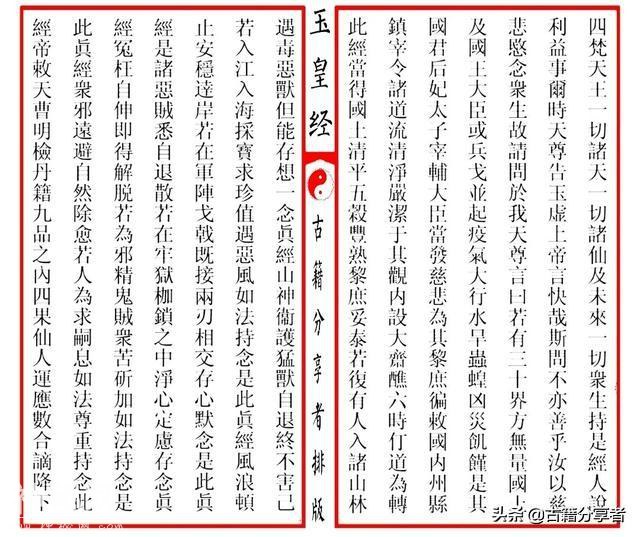 四梵天王一切諸天一切諸仙及未來一切衆生持是經人說
利益事爾時天尊告玉虛上帝言快哉斯問不亦善乎汝以慈
悲愍念衆生故請問於我天尊言曰若有三十界方無量國土
及國王大臣或兵戈並起疫氣大行水旱蟲蝗凶災飢饉是其
國君后妃太子宰輔大臣當發慈悲為其黎庶徧敕國內州縣
鎮宰令諸道流清淨嚴潔于其觀內設大齋醮六時行道為轉
此經當得國土清平五穀豐熟黎庶妥泰若復有人入諸山林
玉皇经
古籍分享者排版
遇毒惡獸但能存想一念眞經山神衞護猛獸自退終不害己
若入江入海採寶求珍值遇惡風如法持念是此眞經風浪頓
止安穩達岸若在軍陣戈戟既接兩刃相交存心默念是此眞
經是諸惡賊悉自退散若在牢獄枷鎖之中淨心定慮存念眞
經冤枉自伸即得解脫若為邪精鬼賊衆苦斫加如法持念是
此眞經衆邪遠避自然除愈若人為求嗣息如法尊重持念此
經帝敕天曹明檢丹籍九品之內四果仙人運應數合謫降下
头条@古籍分享者